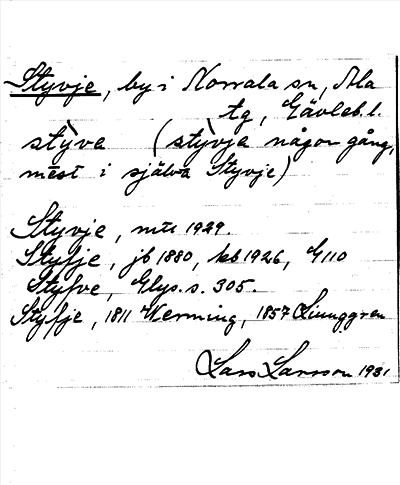 Styvje, by i Norrala sn, Ala
tg, Gävleb.l.
sty̆̀va (sty̆̀vja någon gång,
mest i själva Styvje)
Styvje, mtl 1929.
Styfje, jb 1880, kb 1926, G110
Styfve, Glys. s. 305.
Styfje, 1811 Werming, 1857 Ljunggren
Lars Larsson 1931